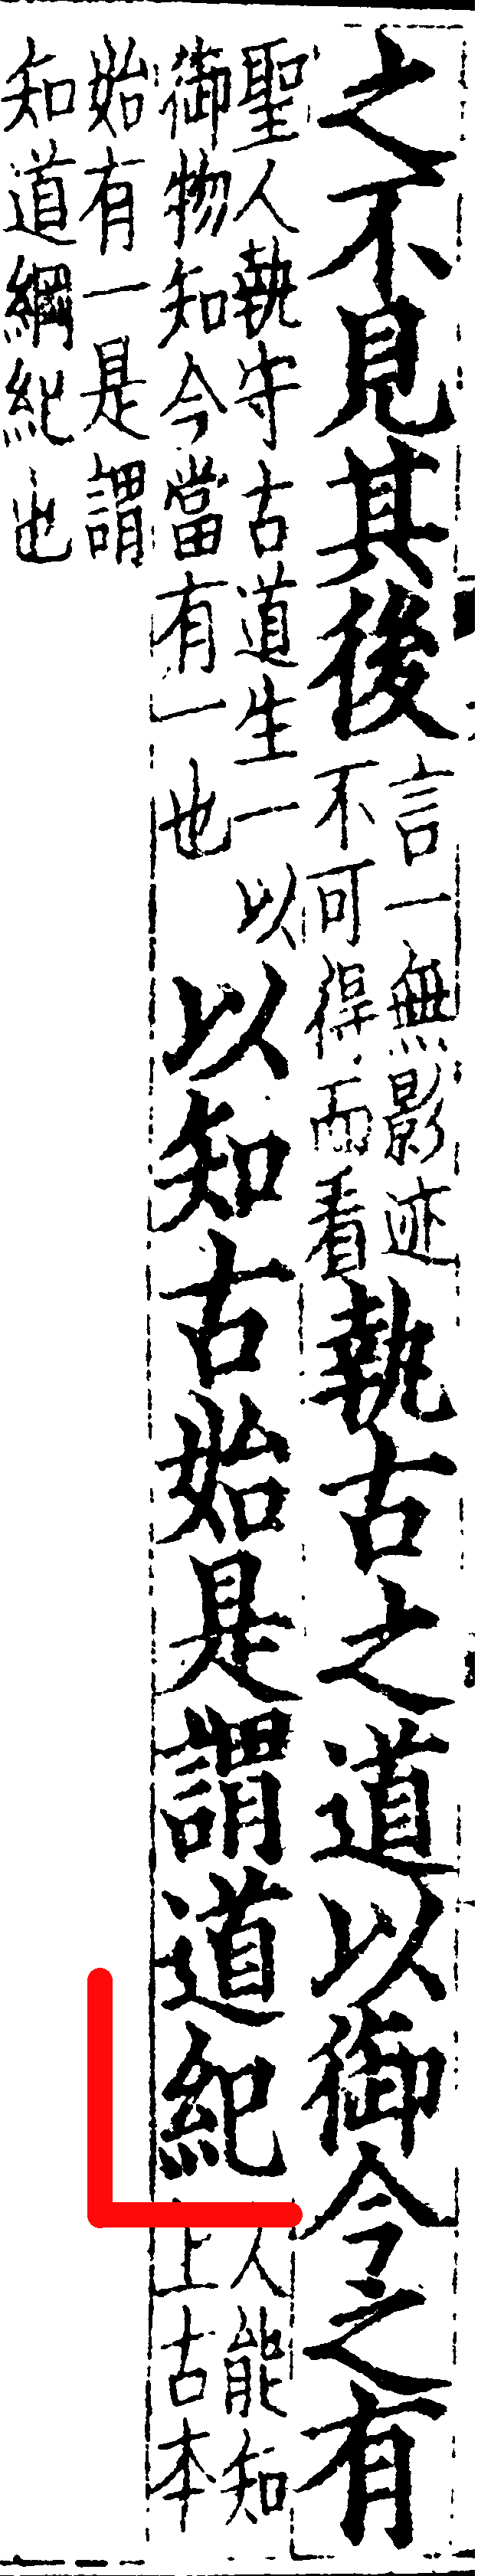 之不見其後
言一無影迹
不可得而看
執古之道以御今之有
聖人執守古道生一以
御物知今當有一也
以知古始是謂道紀
人能知
上古本
始有一是謂
知道綱紀也